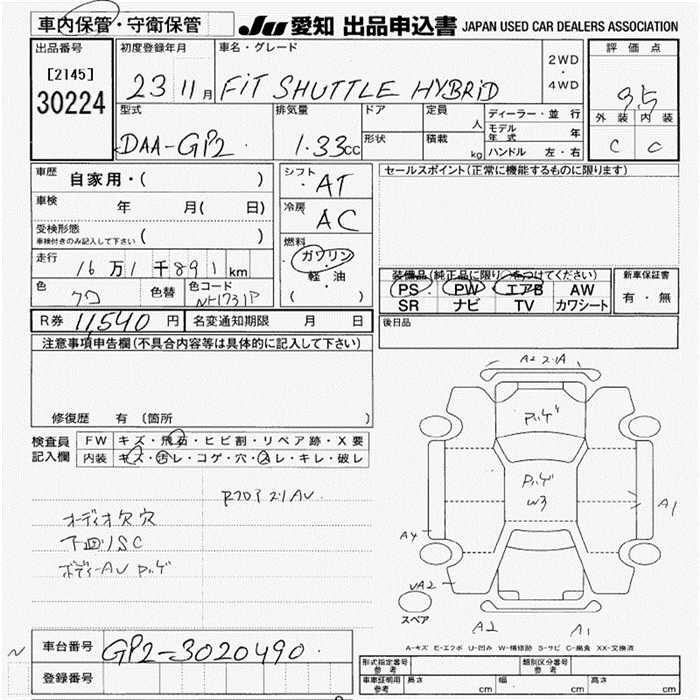 車内保管・守衛保管
JU 愛知 出品申込書 JAPAN USED CAR DEALERS ASSOCIATION
出品番号
[2145]
30224
初度登録年月
23 11月
車名・グレード
FiT SHUTTLE HYBRiD
2WD
・
4WD
評価点
3.5
外装 内装
C C
型式
DAA-GP2
排気量
1.33cc
ドア
形状
定員
人
積載
kg
ディーラー・並行
モデル年式 年
ハンドル 左・右
車歴
自家用・( )
車検
年 月( 日)
受検形態
車検付きのみ記入して下さい ( )
走行
16万1千891km
色
色替
色コード
NH731P
シフト
AT
冷房
AC
燃料
ガソリン
軽・油
( )
セールスポイント(正常に機能するものに限ります)
装備品(純正品に限り○をつけてください)
PS PW エアB AW
SR ナビ TV カワシート
新車保証書
有・無
R券 11540円
名変通知期限 月 日
後日品
注意事項申告欄(不具合内容等は具体的に記入して下さい)
修復歴 有 (箇所
検査員
記入欄
FW キズ・飛石・ヒビ割・リペア跡・X要
内装 キズ・汚レ・コゲ・穴・スレ・キレ・破レ
オーディオ欠穴
下回りSC
A1
A4
W3
A2
A1
スペア
A-キズ E-エクボ U-凹み W-補修跡 S-サビ C-腐食 XX-交換済
車台番号
GP2-3020490
登録番号
形式指定番号
参考
類別区分番号
参考
車庫証明用
参考
長さ cm
幅 cm
高さ cm